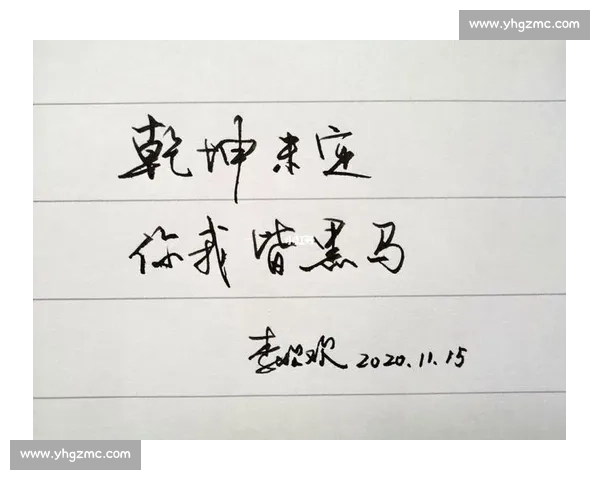 www.yhgzmc.com
乾坤未定
你我皆黑马
小红书
李欢欢 2020.11.15
www.yhgzmc.com